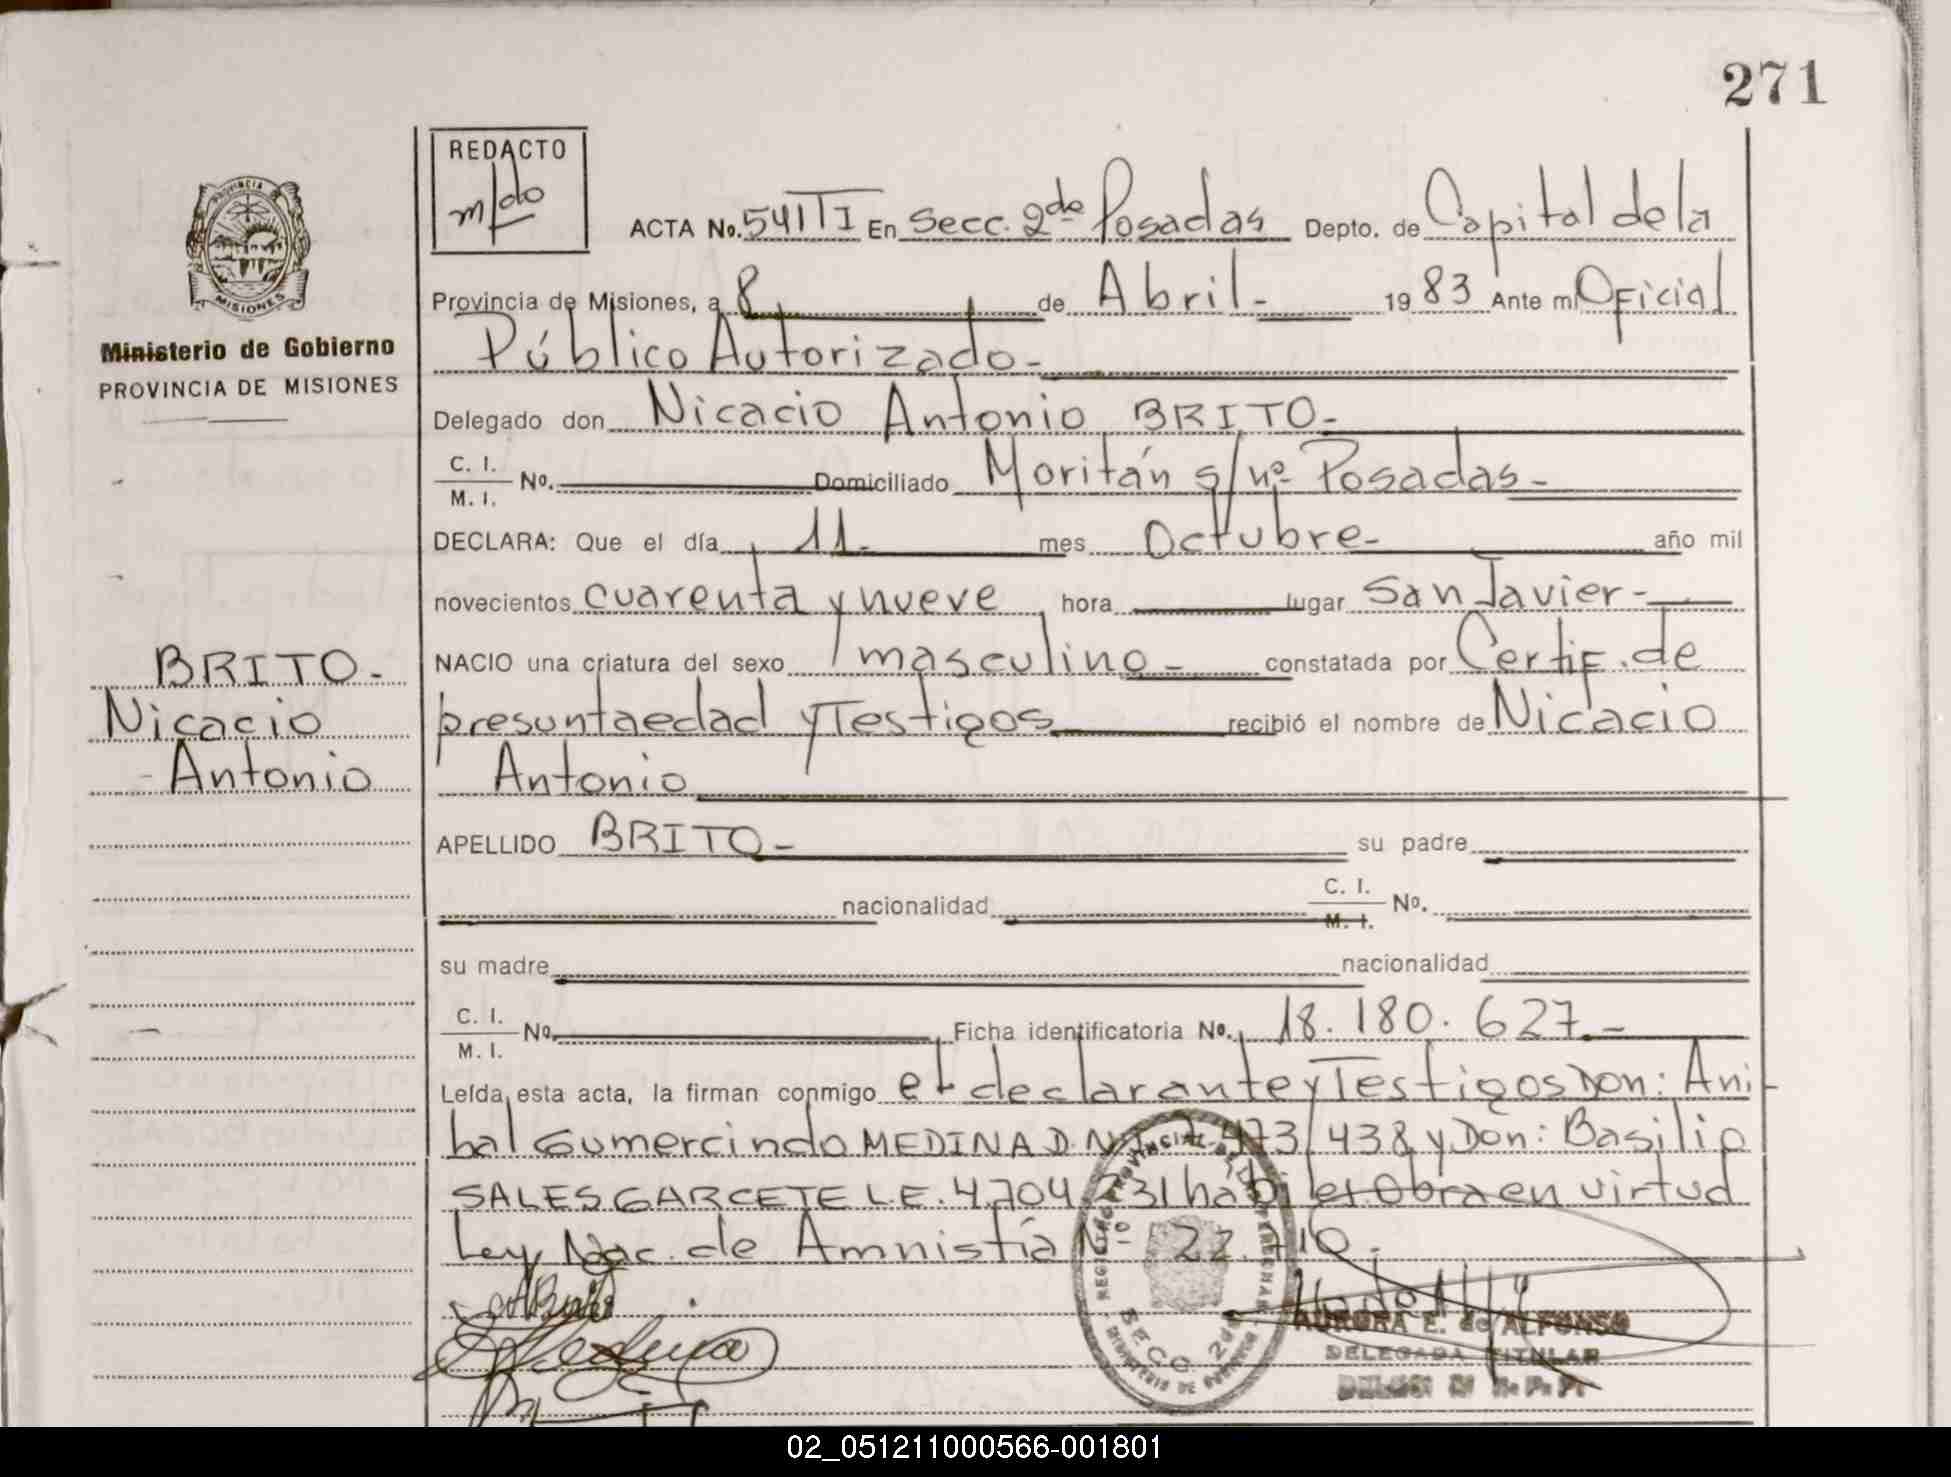 271
REDACTO
m/do
ACTA No. 541 T I En Secc. 2da Posadas Depto. de Capital de la
Provincia de Misiones, a 8 de Abril - 1983 Ante mí Oficial
Público Autorizado -
Ministerio de Gobierno
PROVINCIA DE MISIONES
Delegado don Nicacio Antonio BRITO -
C. I. / M. I. No. Domiciliado Moritán s/nº Posadas -
DECLARA: Que el día 11 - mes Octubre - año mil
novecientos cuarenta y nueve hora lugar San Javier -
NACIO una criatura del sexo masculino - constatada por Certif. de
presunta edad y Testigos recibió el nombre de Nicacio
Antonio
BRITO -
Nicacio
- Antonio
APELLIDO BRITO - su padre
nacionalidad C. I. / M. I. No.
su madre nacionalidad
C. I. / M. I. No. Ficha identificatoria No. 18.180.627 -
Leída esta acta, la firman conmigo el declarante y Testigos Don: Ani-
bal Gumercindo MEDINA D.N.I. 7.473.438 y Don: Basilio
SALES GARCETE L.E. 4.704.231 hábiles. Obra en virtud
Ley Nac. de Amnistía Nº 22.
AURORA E. de ALFONSO
DELEGADA TITULAR
SECC. 2da
02_051211000566-001801